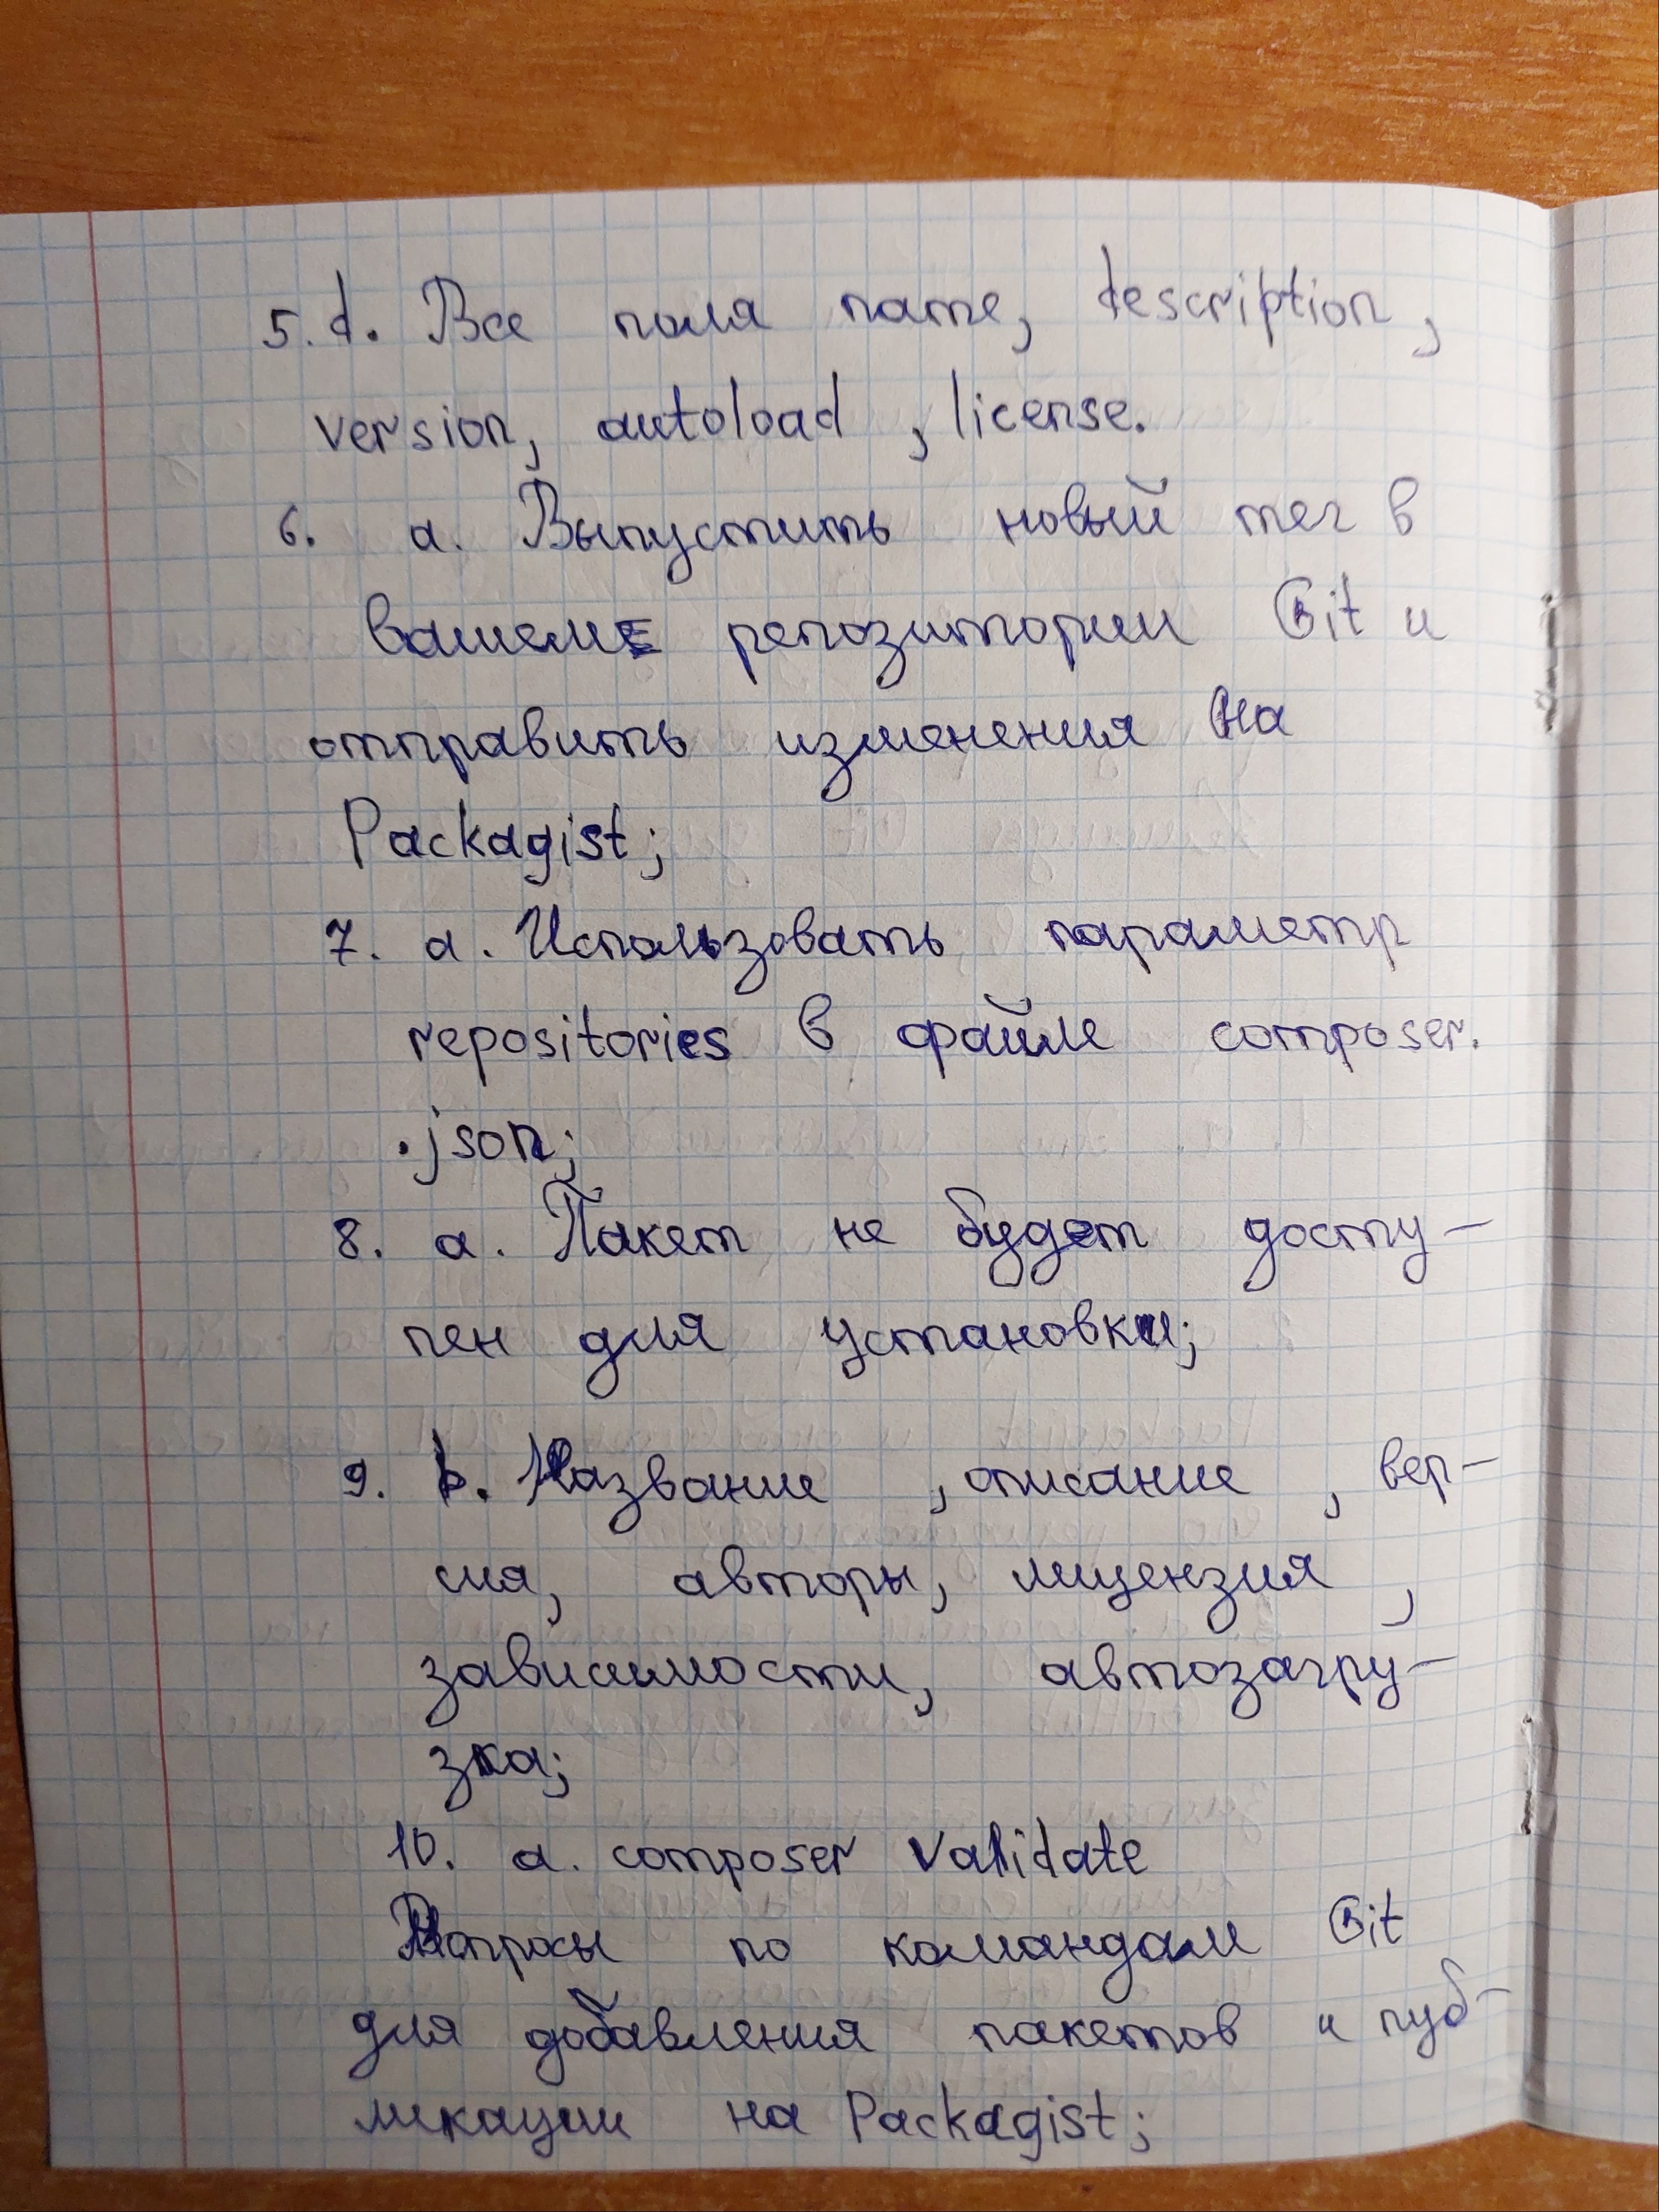 5. d. Все поля name, description,
version, autoload, license.
6. a. Выпустить новый тег в
вашем репозитории Git и
отправить изменения на
Packagist;
7. a. Использовать параметр
repositories в файле composer.
.json;
8. a. Пакет не будет досту-
пен для установки;
9. b. Название, описание, вер-
сия, авторы, лицензия,
зависимости, автозагру-
зка;
10. a. composer validate
Вопросы по командам Git
для добавления пакетов и пуб-
ликации на Packagist;